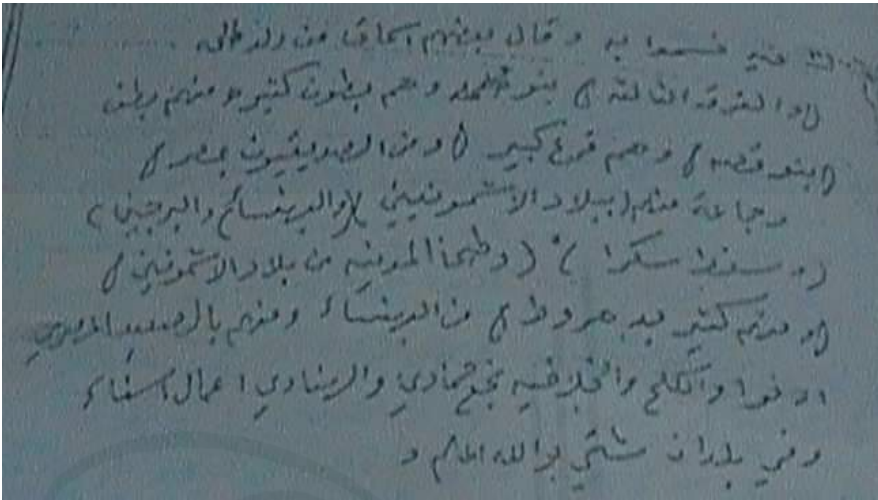 فيه فسموا به وقال بعضهم اسحاق من ولد طلحه
(و الفرقه الثالثة) بنو محمد وهم بطون كثيره منهم بطن
(بنو قصه) وهم فرع كبير (ومن الصديقيون بمصر)
وجاعة منهم (ببلاد الاشمونين) (والبهنسا والبرجين)
(وسفط سكرا) (وطحا المدينه من بلاد الاشمونين)
(ومنهم كثير بد هروط) من البهنساء ومنهم بالصعيد المصري
ادفوا والكلح والخلافيه بنجع حمادي والرينادي اعمال اسناء
وفي بلدان شتي والله اعلم